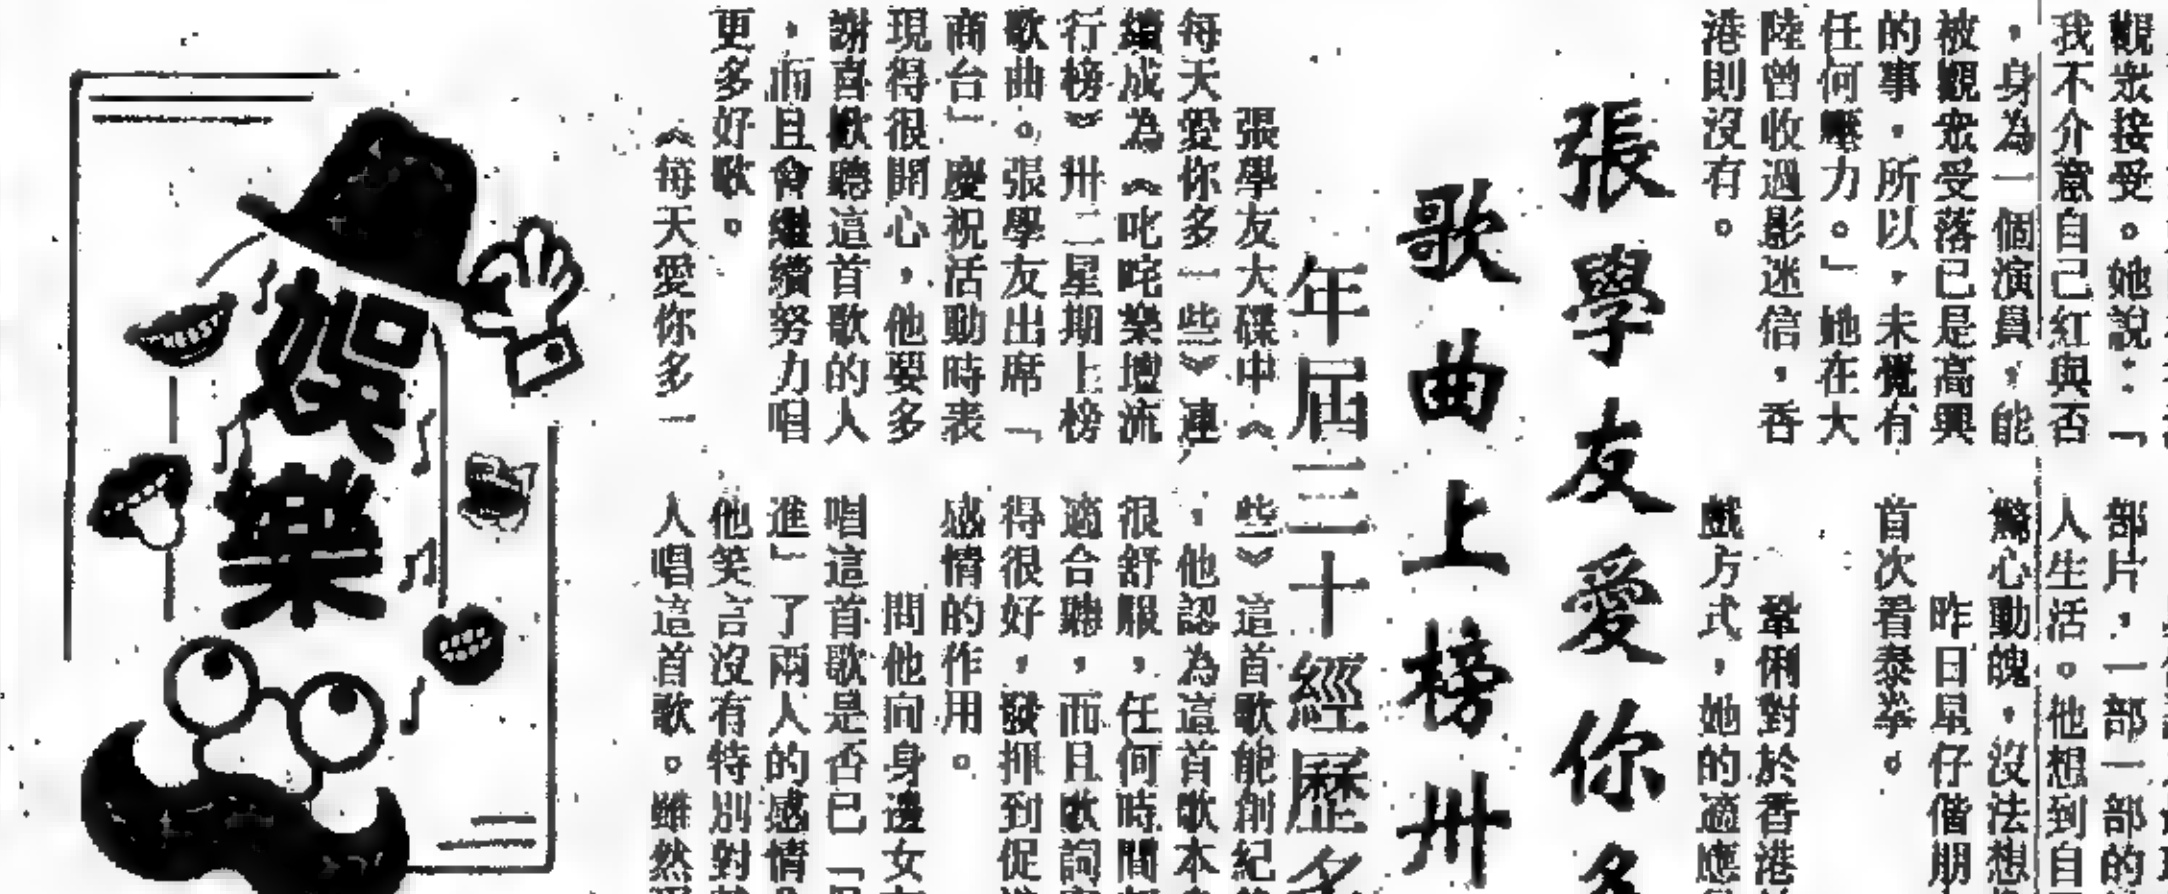 觀眾接受。她說：「
我不介意自己紅與否
，身為一個演員，能
被觀眾受落已是高興
的事，所以，未覺有
任何壓力。」她在大
陸曾收過影迷信，香
港則沒有。
部片，一部一部的
人生活。他想到自
驚心動魄，沒法想
昨日星仔偕朋
首次看泰拳。
鞏俐對於香港
戲方式，她的適應
張學友愛你多
歌曲上榜卅
年屆三十經歷多
張學友大碟中《
每天愛你多一些》連
續成為《叱咤樂壇流
行榜》卅二星期上榜
歌曲。張學友出席「
商台」慶祝活動時表
現得很開心，他要多
謝喜歡聽這首歌的人
，而且會繼續努力唱
更多好歌。
《每天愛你多一
些》這首歌能創紀
，他認為這首歌本
很舒服，任何時間
適合聽，而且歌詞
得很好，發揮到促
感情的作用。
問他向身邊女
唱這首歌是否已「
進」了兩人的感情
他笑言沒有特別對
人唱這首歌。雖然
娛樂